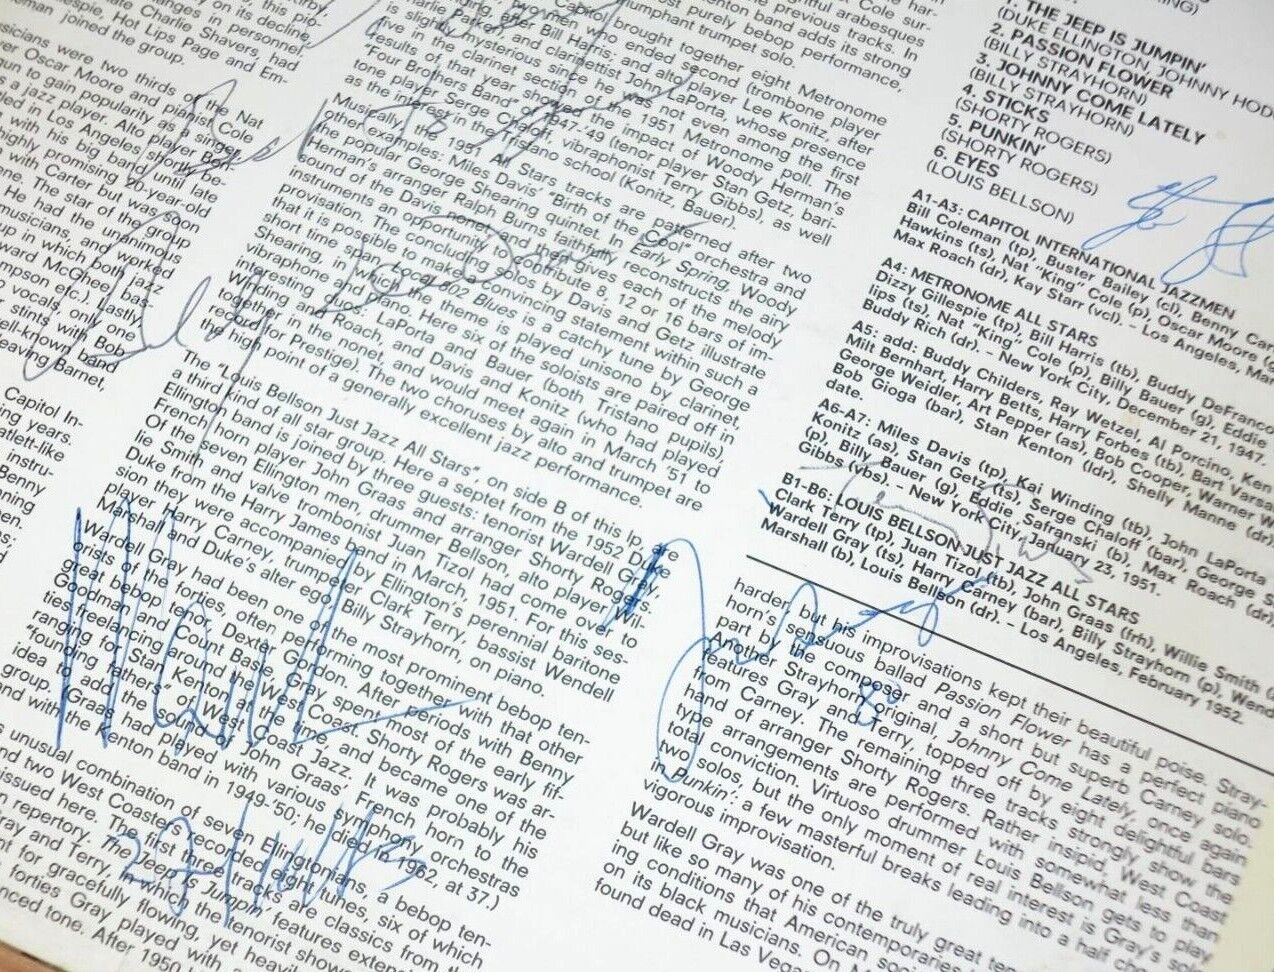 this pio-
on its decline,
changes in personnel
Charlie Shavers, had
Hot Lips Page and Em-
joined the group.
musicians were two thirds of the Nat
Oscar Moore and pianist Cole
to gain popularity as a singer
a jazz player. Alto player Bob
in Los Angeles shortly be-
with his big band until late
highly promising 20-year-old
with Carter but was soon
The star of the group
He had the unanimous
musicians, and worked
up in which both jazz
Howard McGhee, bas-
Thompson etc.). Lastly,
vocals, only one
stints with Bob
well-known band
leaving Barnet,
Capitol In-
years.
instru-
Benny
Cole sur-
glittering arabesques
the previous tracks. In
Kenton band adds its strong
most purely bebop performance,
triumphant trumpet solo.
Capitol brought together eight Metronome
two men who ended second (trombone player
Bill Harris; and alto player Lee Konitz, after
Charlie Parker), and clarinettist John LaPorta, whose presence
is slightly mysterious since he was not even among the first
five in the clarinet section of the 1951 Metronome poll. The
results of that year showed the impact of Woody Herman's
"Four Brothers Band" of 1947-49 (tenor player Stan Getz, bari-
tone player Serge Chaloff, vibraphonist Terry Gibbs), as well
as the interest in the Tristano school (Konitz, Bauer).
Musically, the 1951 All Stars tracks are patterned after two
other examples: Miles Davis' "Birth of the Cool" orchestra and
the popular George Shearing quintet. In Early Spring, Woody
Herman's arranger Ralph Burns faithfully reconstructs the airy
sound of the Davis nonet and then gives each of the melody
instruments an opportunity to contribute 8, 12 or 16 bars of im-
provisation. The concluding solos by Davis and Getz illustrate
that it is possible to make a convincing statement within such a
short time span. Local 802 Blues is a catchy tune by George
Shearing, in which the theme is played unisono by clarinet,
vibraphone and piano. Here six of the soloists are paired off in
interesting duos: LaPorta and Bauer (both Tristano pupils),
Winding and Roach, and Davis and Konitz (who had played
together in the nonet, and would meet again in March '51 to
record for Prestige). The two choruses by alto and trumpet are
the high point of a generally excellent jazz performance.
The "Louis Bellson Just Jazz All Stars", on side B of this lp, are
a third kind of all star group. Here a septet from the 1952 Duke
Ellington band is joined by three guests: tenorist Wardell Gray,
French horn player John Graas and arranger Shorty Rogers.
Of the seven Ellington men, drummer Bellson, alto player Wil-
lie Smith and valve trombonist Juan Tizol had come over to
Duke from the Harry James band in March, 1951. For this ses-
sion they were accompanied by Ellington's perennial baritone
player Harry Carney, trumpeter Clark Terry, bassist Wendell
Marshall and Duke's alter ego, Billy Strayhorn, on piano.
Wardell Gray had been one of the most prominent bebop ten-
orists of the forties, often performing together with that other
great bebop tenor, Dexter Gordon. After periods with Benny
Goodman and Count Basie, Gray spent most of the early fif-
ties freelancing around the West Coast. Shorty Rogers was ar-
ranging for Stan Kenton at the time, and became one of the
"founding fathers" of West Coast Jazz. It was probably his
idea to add the sound of John Graas' French horn to the
group. (Graas had played with various symphony orchestras
and with the Kenton band in 1949-'50; he died in 1962, at 37.)
unusual combination of seven Ellingtonians, a bebop ten-
and two West Coasters recorded eight tunes, six of which
issued here. The first three tracks are classics from the
repertory. The Jeep Is Jumpin' features extensive
Gray and Terry, in which the tenorist shows
for gracefully flowing, yet heavily
forties Gray played with a
tone. After 1950
1. THE JEEP IS JUMPIN'
(DUKE ELLINGTON, JOHNNY HODGES
2. PASSION FLOWER
(BILLY STRAYHORN)
3. JOHNNY COME LATELY
(BILLY STRAYHORN)
4. STICKS
(SHORTY ROGERS)
5. PUNKIN'
(SHORTY ROGERS)
6. EYES
(LOUIS BELLSON)
A1-A3: CAPITOL INTERNATIONAL JAZZMEN
Bill Coleman (tp), Buster Bailey (cl), Benny Carter
Hawkins (ts), Nat "King" Cole (p), Oscar Moore (g
Max Roach (dr), Kay Starr (vcl). – Los Angeles, Mar
A4: METRONOME ALL STARS
Dizzy Gillespie (tp), Bill Harris (tb), Buddy DeFranco
lips (ts), Nat "King" Cole (p), Billy Bauer (g), Eddie
Buddy Rich (dr). – New York City, December 21, 1947.
A5: add: Buddy Childers, Ray Wetzel, Al Porcino, Ken
Milt Bernhart, Harry Betts, Harry Forbes (tb), Bart Varsa
George Weidler, Art Pepper (as), Bob Cooper, Warner W
Bob Gioga (bar), Stan Kenton (ldr), Shelly Manne (dr).
date.
A6-A7: Miles Davis (tp), Kai Winding (tb), John LaPorta
Konitz (as), Stan Getz (ts), Serge Chaloff (bar), George S
(p), Billy Bauer (g), Eddie Safranski (b), Max Roach (dr),
Gibbs (vbs). – New York City, January 23, 1951.
B1-B6: LOUIS BELLSON JUST JAZZ ALL STARS
Clark Terry (tp), Juan Tizol (tb), John Graas (frh), Willie Smith (
Wardell Gray (ts), Harry Carney (bar), Billy Strayhorn (p), Wende
Marshall (b), Louis Bellson (dr). – Los Angeles, February 1952.
harder, but his improvisations kept their beautiful poise. Stray-
horn's sensuous ballad Passion Flower has a perfect piano
part by the composer and a short but superb Carney solo.
Another Strayhorn original, Johnny Come Lately, once again
features Gray and Terry, topped off by eight delightful bars
from Carney. The remaining three tracks strongly show the
hand of arranger Shorty Rogers. Rather insipid, West Coast
type arrangements are performed with somewhat less than
total conviction. Virtuoso drummer Louis Bellson gets to play
two solos, but the only moment of real interest is Gray's solo
in Punkin': a few masterful breaks leading into a half ch
vigorous improvisation.
Wardell Gray was one of the truly great ten
but like so many of his contemporaries
ing conditions that American soci
on its black musicians. On M
found dead in Las Vegas